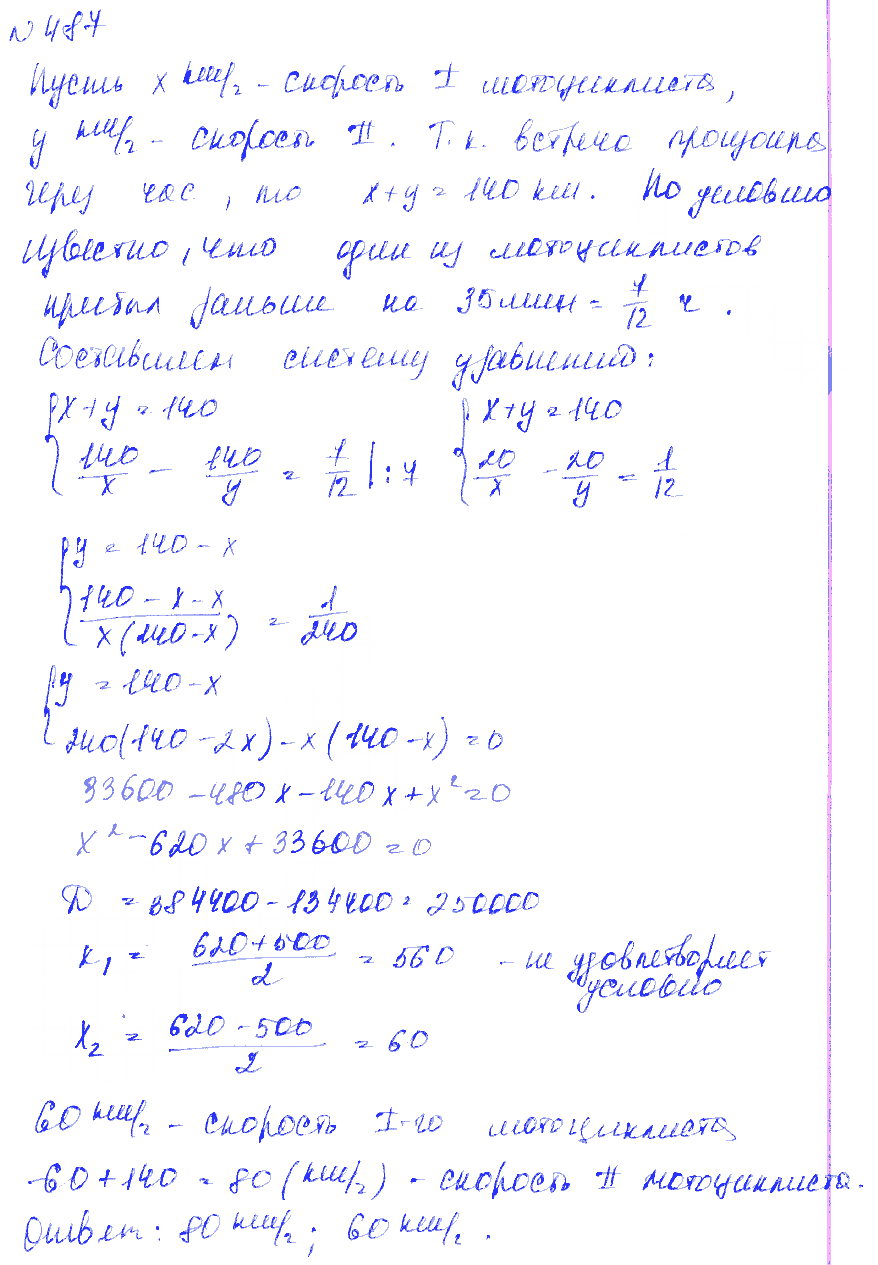 №487
Пусть x км/ч - скорость I мотоциклиста,
y км/ч - скорость II. Т.к. встреча произошла
через час, то x+y=140 км. По условию
известно, что один из мотоциклистов
прибыл раньше на 35 мин = 7/12 ч.
Составляем систему уравнений:
{ x+y=140 { x+y=140
{ 140/x - 140/y = 7/12 |:7 { 20/x - 20/y = 1/12
{ y=140-x
{ (140-x-x)/(x(140-x)) = 1/240
{ y=140-x
{ 240(140-2x)-x(140-x)=0
33600-480x-140x+x²=0
x²-620x+33600=0
D = 384400-134400=250000
x₁ = (620+500)/2 = 560 - не удовлетворяет
условию
x₂ = (620-500)/2 = 60
60 км/ч - скорость I-го мотоциклиста
-60+140=80 (км/ч) - скорость II мотоциклиста.
Ответ: 80 км/ч; 60 км/ч.